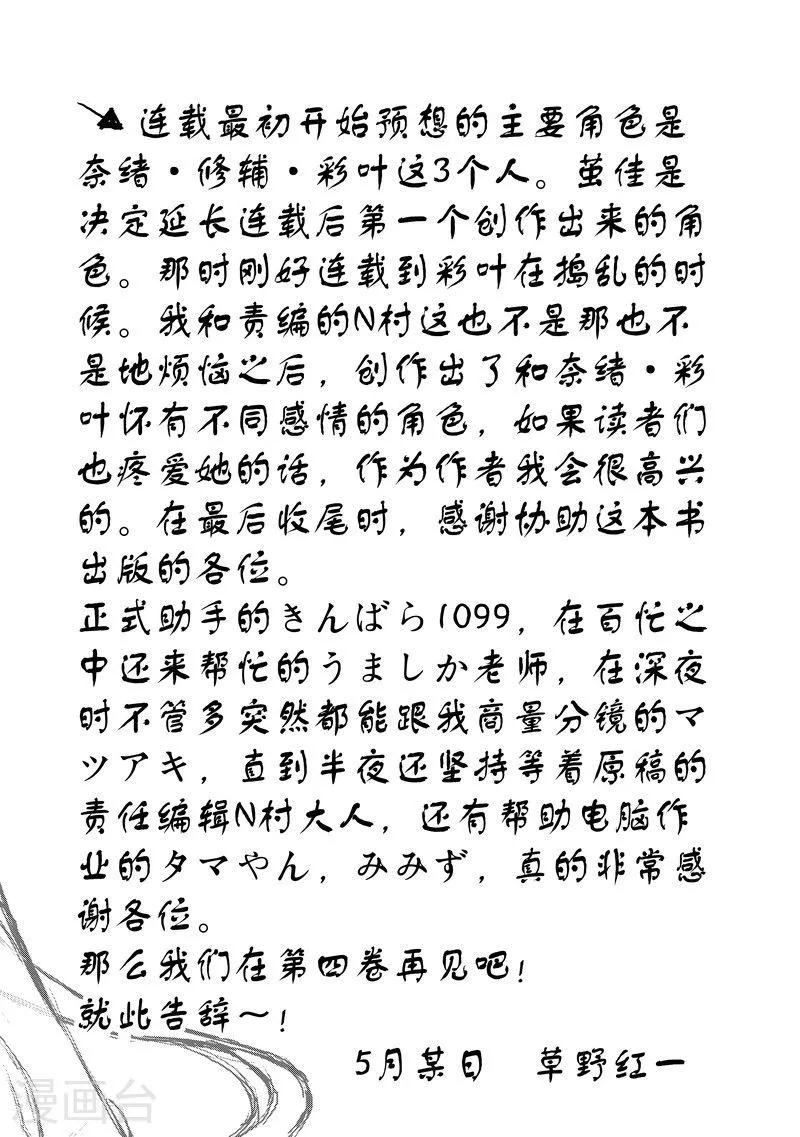 连载最初开始预想的主要角色是
奈绪·修辅·彩叶这3个人。萤佳是
决定延长连载后第一个创作出来的角
色。那时刚好连载到彩叶在捣乱的时
候。我和责编的N村这也不是那也不
是地烦恼之后，创作出了和奈绪·彩
叶怀有不同感情的角色，如果读者们
也疼爱她的话，作为作者我会很高兴
的。在最后收尾时，感谢协助这本书
出版的各位。
正式助手的きんばら1099，在百忙之
中还来帮忙的うましか老师，在深夜
时不管多突然都能跟我商量分镜的マ
ツアキ，直到半夜还坚持等着原稿的
责任编辑N村大人，还有帮助电脑作
业的タマやん，みみず，真的非常感
谢各位。
那么我们在第四卷再见吧！
就此告辞～！
5月某日 草野红一
漫画台